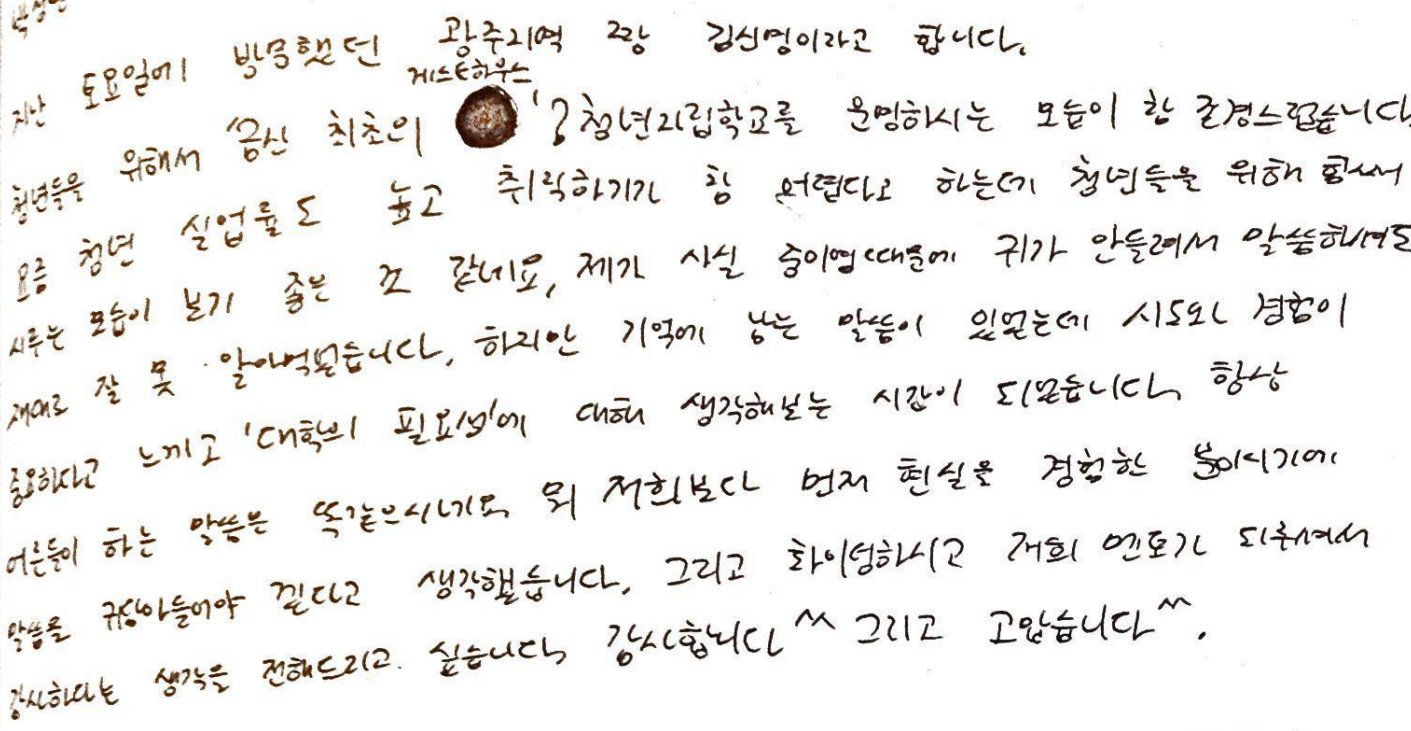 지난 토요일에 방문했던 광주지역 짱 김신명이라고 합니다.
게스트하우스
청년들을 위해서 '금산 최초의 청년자립학교를 운영하시는 모습이 참 존경스럽습니다
요즘 청년 실업률도 높고 취직하기가 참 어렵다고 하는데 청년들을 위해 힘써
시루는 모습이 보기 좋은 것 같네요, 제가 사실 중이염때문에 귀가 안들려서 말씀하셔도
제대로 잘 못 알아먹었습니다. 하지만 기억에 남는 말씀이 있었는데 시도와 경험이
중요하다고 느끼고 '대학의 필요성'에 대해 생각해보는 시간이 되었습니다, 항상
어른들이 하는 말씀은 똑같으시네요, 뭐 저희보다 먼저 현실을 경험한 분이시기에
말씀을 귀담아들어야 겠다고 생각했습니다. 그리고 화이팅하시고 저희 멘토가 되주셔서
감사하다는 생각을 전해드리고 싶습니다, 감사합니다^^ 그리고 고맙습니다^^.